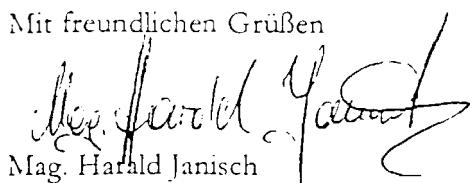 Mit freundlichen Grüßen
Mag. Harald Janisch
Mag. Harald Janisch